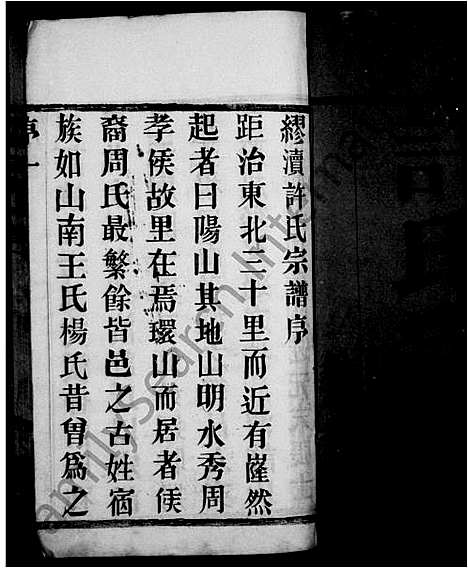 繆瀆許氏宗譜序
距治東北三十里而近有嶐然
起者曰陽山其地山明水秀周
孝侯故里在焉環山而居者侯
裔周氏最繁餘皆邑之古姓宿
族如山南王氏楊氏昔曾爲之
序一